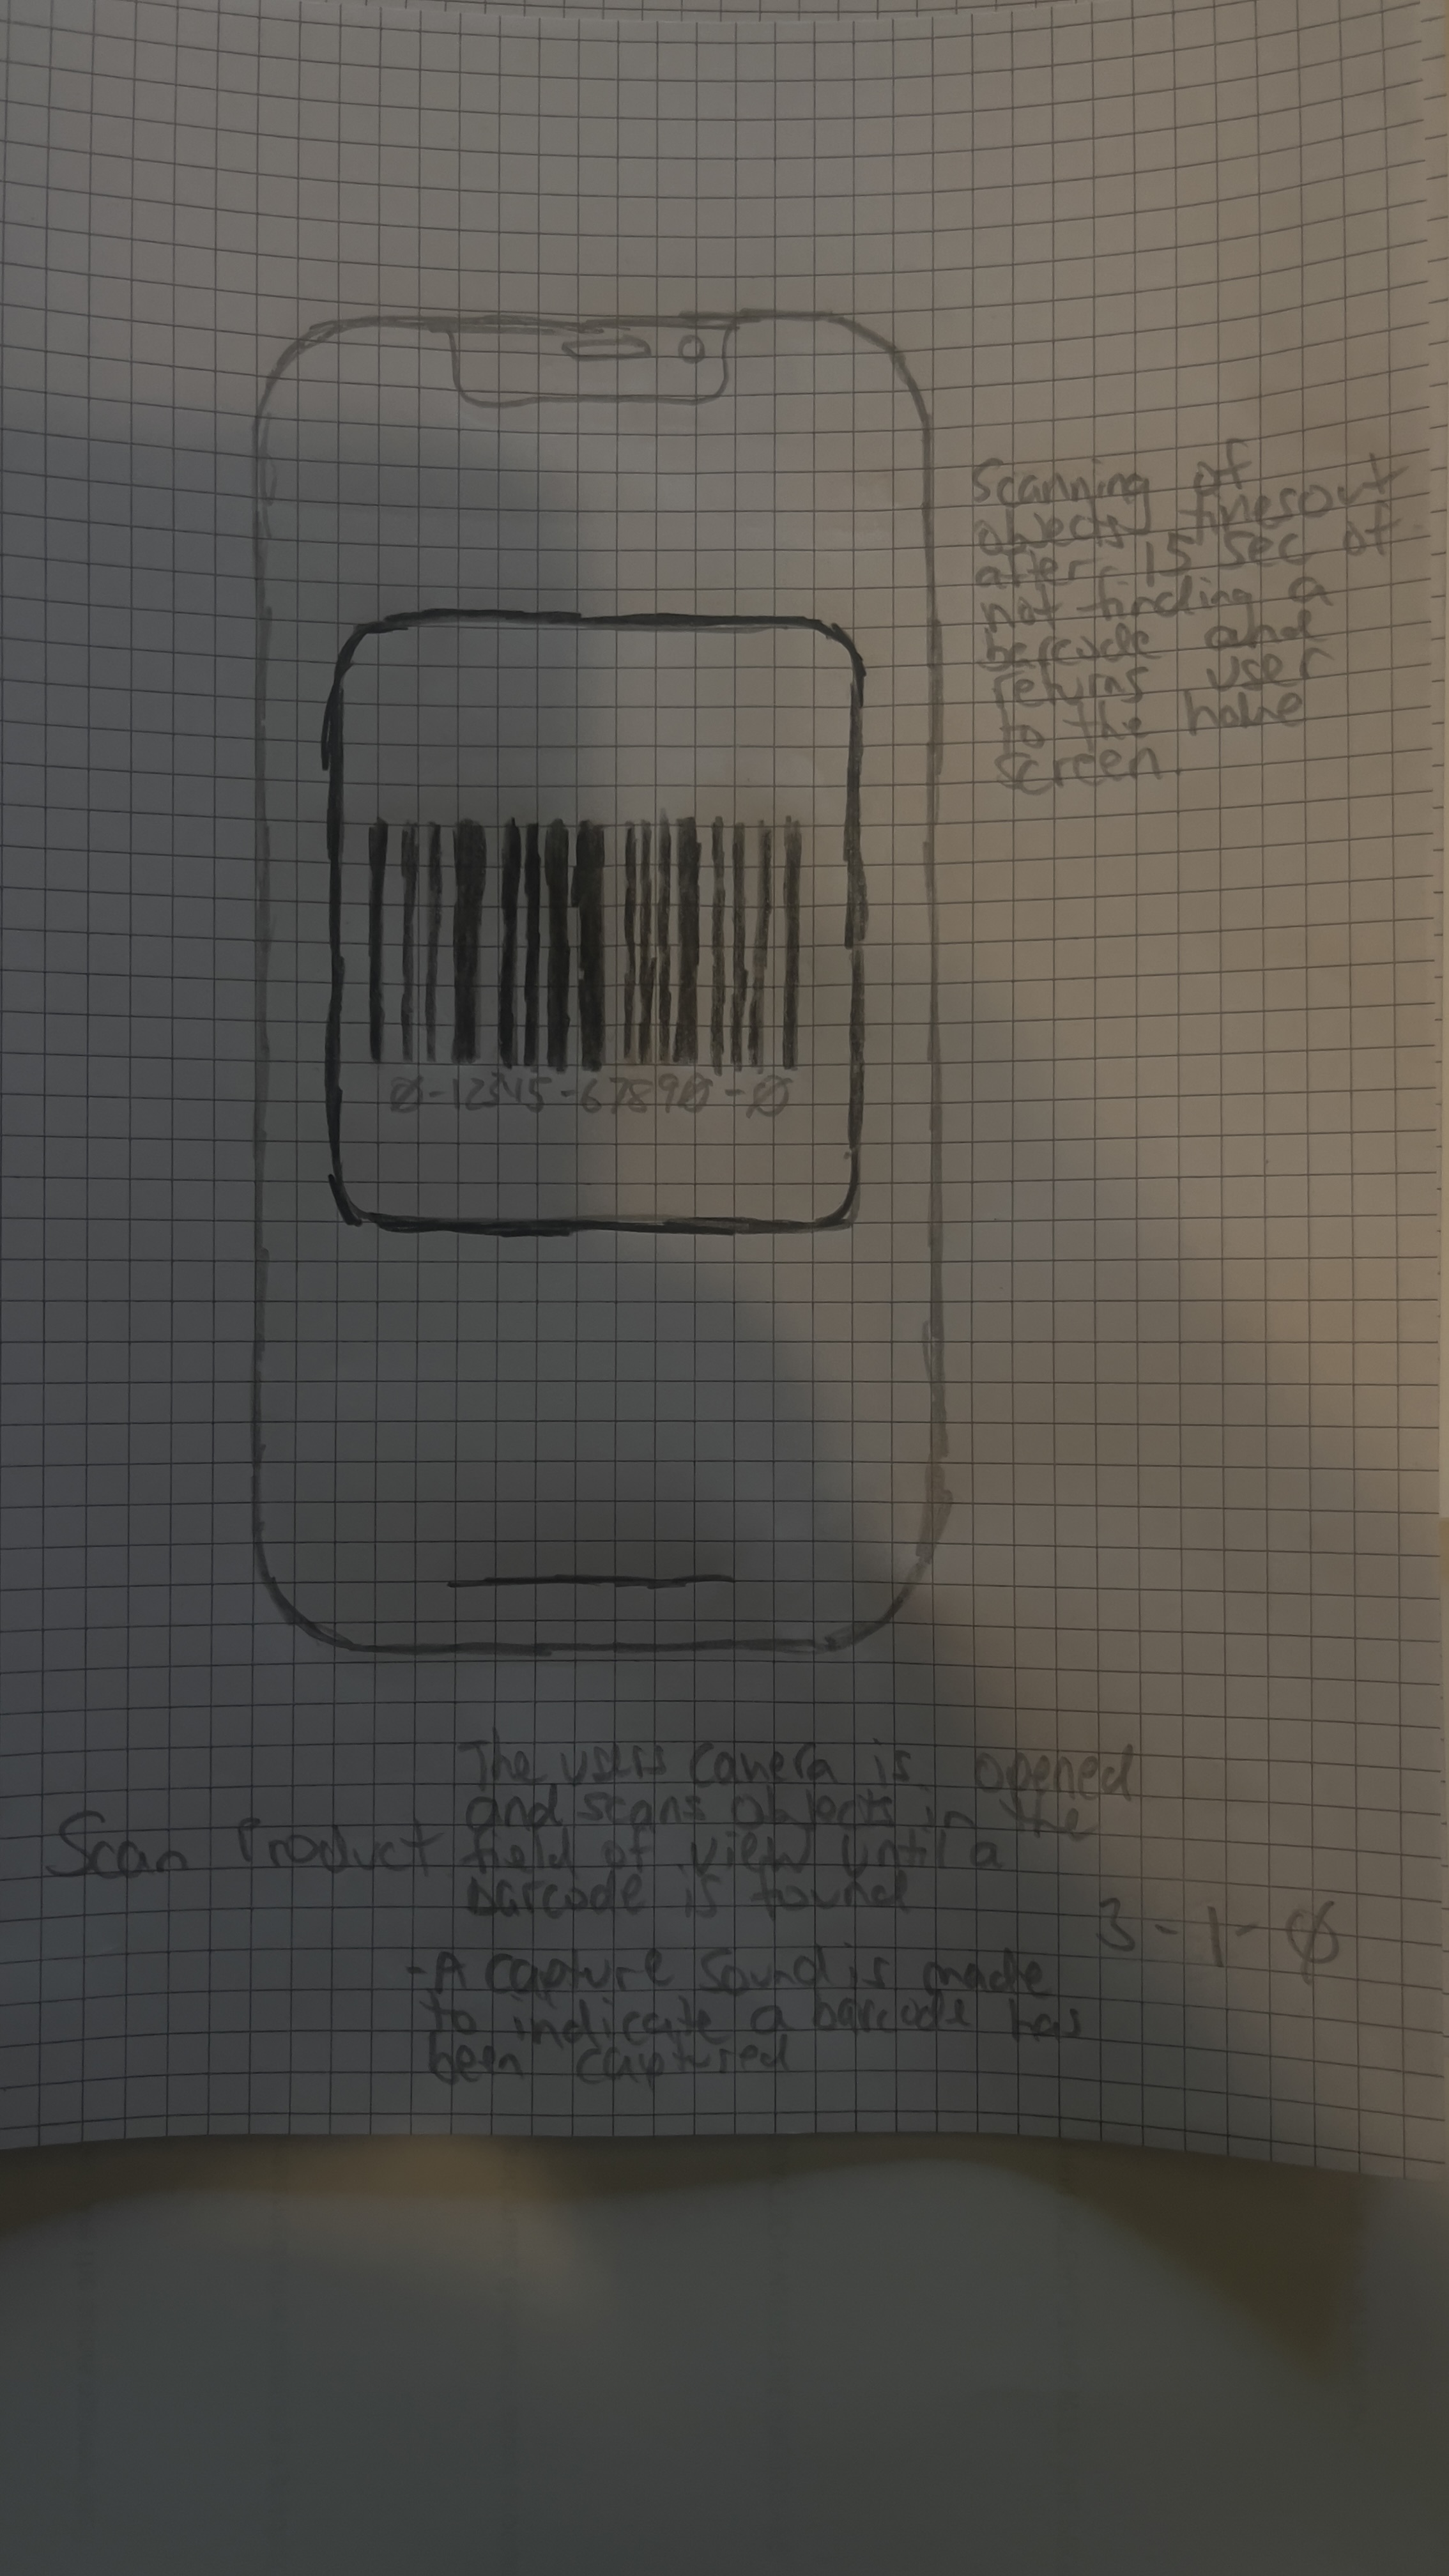 Scanning of
objects timesout
after 15 sec of
not finding a
barcode and
returns user
to the home
screen.
0-12345-67890-0
The users camera is opened
and scans objects in the
Scan Product
field of view until a
barcode is found
3-1-0
-A capture sound is made
to indicate a barcode has
been captured